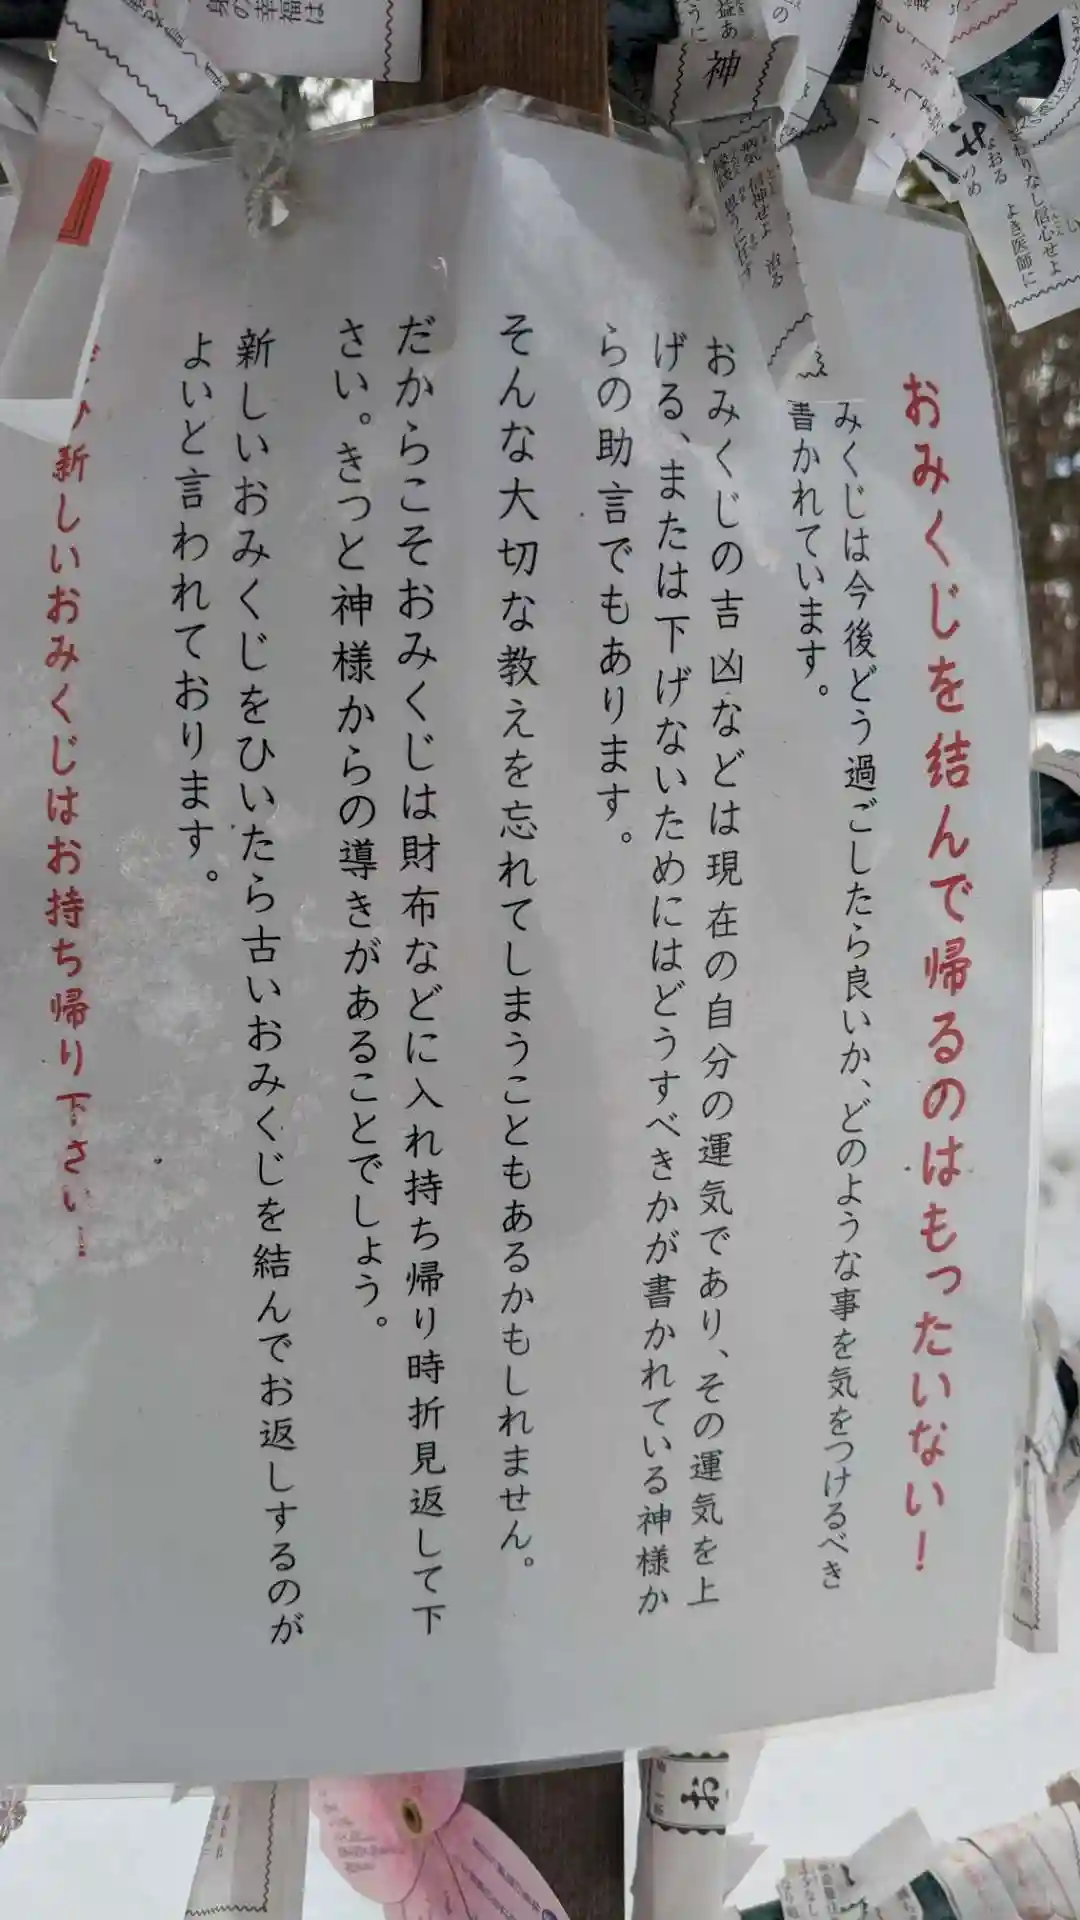 おみくじを結んで帰るのはもったいない！
みくじは今後どう過ごしたら良いか、どのような事を気をつけるべき
書かれています。
おみくじの吉凶などは現在の自分の運気であり、その運気を上
げる、または下げないためにはどうすべきかが書かれている神様か
らの助言でもあります。
そんな大切な教えを忘れてしまうこともあるかもしれません。
だからこそおみくじは財布などに入れ持ち帰り時折見返して下
さい。きっと神様からの導きがあることでしょう。
新しいおみくじをひいたら古いおみくじを結んでお返しするのが
よいと言われております。
新しいおみくじはお持ち帰り下さい！
神
信神せよ 治る
さわりなし信心せよ
よき医師に
幸福は
お